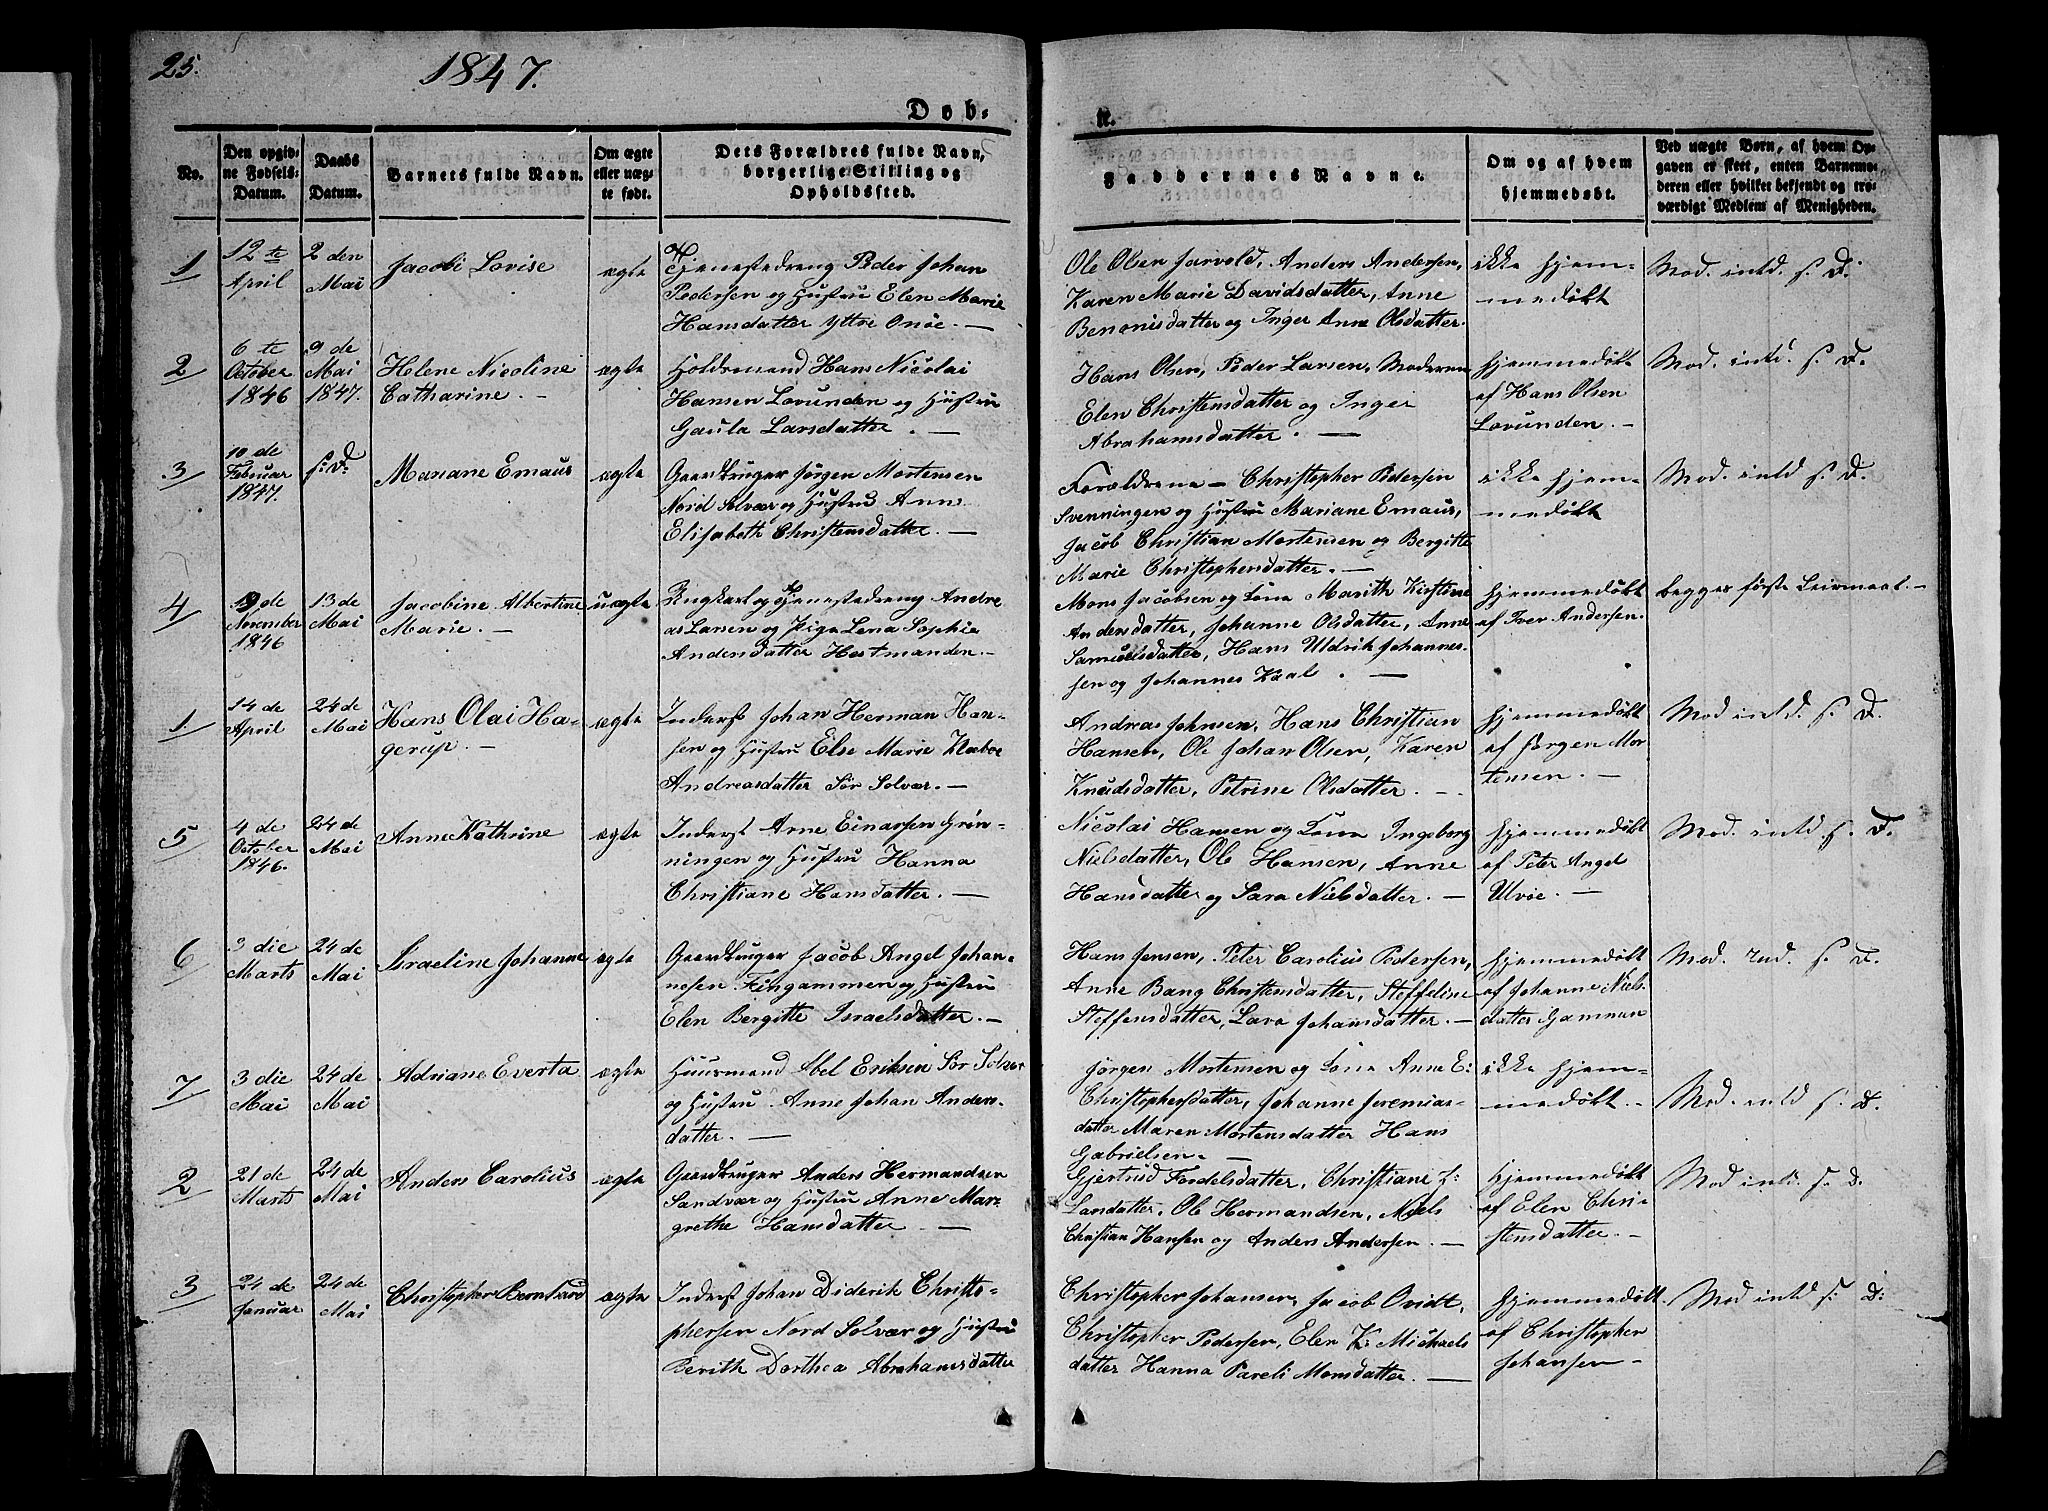 25.
1847.
Dob=
n.
No.
Den opgiv=
ne Fødsels=
Datum.
Daabs
Datum.
Barnets fulde Navn.
Om ægte
eller uæg=
te født.
Dets Forældres fulde Navn,
borgerlige Stilling og
Opholdssted.
Faddernes Navne.
Om og af hvem
hjemmedøbt.
Ved uægte Børn, af hvem Op=
gaven er skeet, enten Barnemo=
deren eller hvilket bekjendt og tro=
værdigt Medlem af Menigheden.
1
12te
April
2den
Mai
Jacobi Lovise
ægte
Tjenestedreng Peder Johan
Pedersen og Hustru Elen Marie
Hansdatter Yttre Onöe. —
Ole Olsen Jarvold, Anders Andersen,
Karen Marie Davidsdatter, Anne
Benonisdatter og Inger Anne Olsdatter.
ikke hjem=
medøbt
Mod. intd. s. D.
2
6te
October
1846
9de
Mai
1847.
Helene Nicoline
Catharine. —
ægte
Holdsmand Hans Nicolai
Hansen Lovunden og Hustru
Gaula Larsdatter. —
Hans Olsen, Peder Larsen, Moderen
Elen Christensdatter og Inger
Abrahamsdatter. —
hjemmedøbt
af Hans Olsen
Lovunden. —
Mod. intd. s. D.
3
10de
Februar
1847.
s. D.
Mariane Emaus
ægte
Gaardbruger Jørgen Mortensen
Nord Solvær og Hustru Anne
Elisabeth Christensdatter. —
Forældrene — Christopher Pedersen
Svenningen og Hustru Mariane Emaus,
Jacob Christian Mortensen og Bergitte
Marie Christophersdatter. —
ikke hjem=
medøbt
Mod. intd s. D.
4
19de
November
1846
13de
Mai
Jacobine Albertine
Marie. —
uægte
Ungkarl og Tjenestedreng Andre
as Larsen og Pige Lena Sophie
Andersdatter Hestmanden. —
Mons Jacobsen og Kone Marith Kirstine
Andersdatter, Johanne Olsdatter, Anne
Samuelsdatter, Hans Uldrik Johannes=
sen og Johannes Kaal. —
hjemmedøbt
af Iver Andersen.
begges første Leiermaal. —
1
14de
April
24de
Mai
Hans Olai Ha=
gerup. —
ægte
Inderst Johan Herman Han=
sen og Hustru Else Marie Klæboe
Andreasdatter Sör Solvær. —
Andreas Johnsen, Hans Christian
Hansen, Ole Johan Olsen, Karen
Knudsdatter, Petrine Olsdatter. —
hjemmedøbt
af Jørgen Mor
tensen. —
Mod intd. s. D.
5
4de
October
1846.
24de
Mai
Anne Kathrine
ægte
Inderst Arne Einarsen Grön=
ningen og Hustru Hanna
Christiane Hansdatter. —
Nicolai Hansen og Kone Ingeborg
Nielsdatter, Ole Hansen, Anne
Hansdatter og Sara Nielsdatter. —
hjemmedøbt
af Peter Angel
Ulvöe. —
Mod. intd s. D.
6
3die
Marts
24de
Mai
Israeline Johanne
ægte
Gaardbruger Jacob Angel Johan=
nesen Fingammen og Hustru
Elen Bergitte Israelsdatter. —
Hans Jensen, Peter Carolius Pedersen,
Anne Bang Christensdatter, Steffeline
Steffensdatter, Lava Johansdatter. —
hjemmedøbt
af Johanne Niels
datter Gammen
Mod. s. D.
7
3die
Mai
24de
Mai
Adriane Everta
ægte
Huusmand Abel Eriksen Sör Solvær
og Hustru Anne Johan Anders=
datter. —
Jørgen Mortensen og Kone Anne E:
Christophersdatter, Johanne Jeremias=
datter Maren Mortensdatter Hans
Gabrielsen. —
ikke hjem=
medøbt. —
Mod. intd s. D.
2
21de
Marts
24de
Mai
Anders Carolius
ægte
Gaardbruger Anders Hermandsen
Sandvær og Hustru Anne Mar=
grethe Hansdatter —
Gjertrud Fordelsdatter, Christiane J:
Larsdatter, Ole Hermandsen, Niels
Christian Hansen og Anders Andersen. —
hjemmedøbt
af Elen Chri=
stensdatter. —
Mod intd. s. D.
3
24de
Januar
24de
Mai
Christopher Berntzard
ægte
Inderst Johan Diderik Christo=
phersen Nord Solvær og Hustru
Berith Dorthea Abrahamsdatter
Christopher Johansen, Jacob Ovidt,
Christopher Pedersen, Elen K. Michaels
datter Hanna Pareli Monsdatter. —
hjemmedøbt
af Christopher
Johansen —
Mod intd s: D: